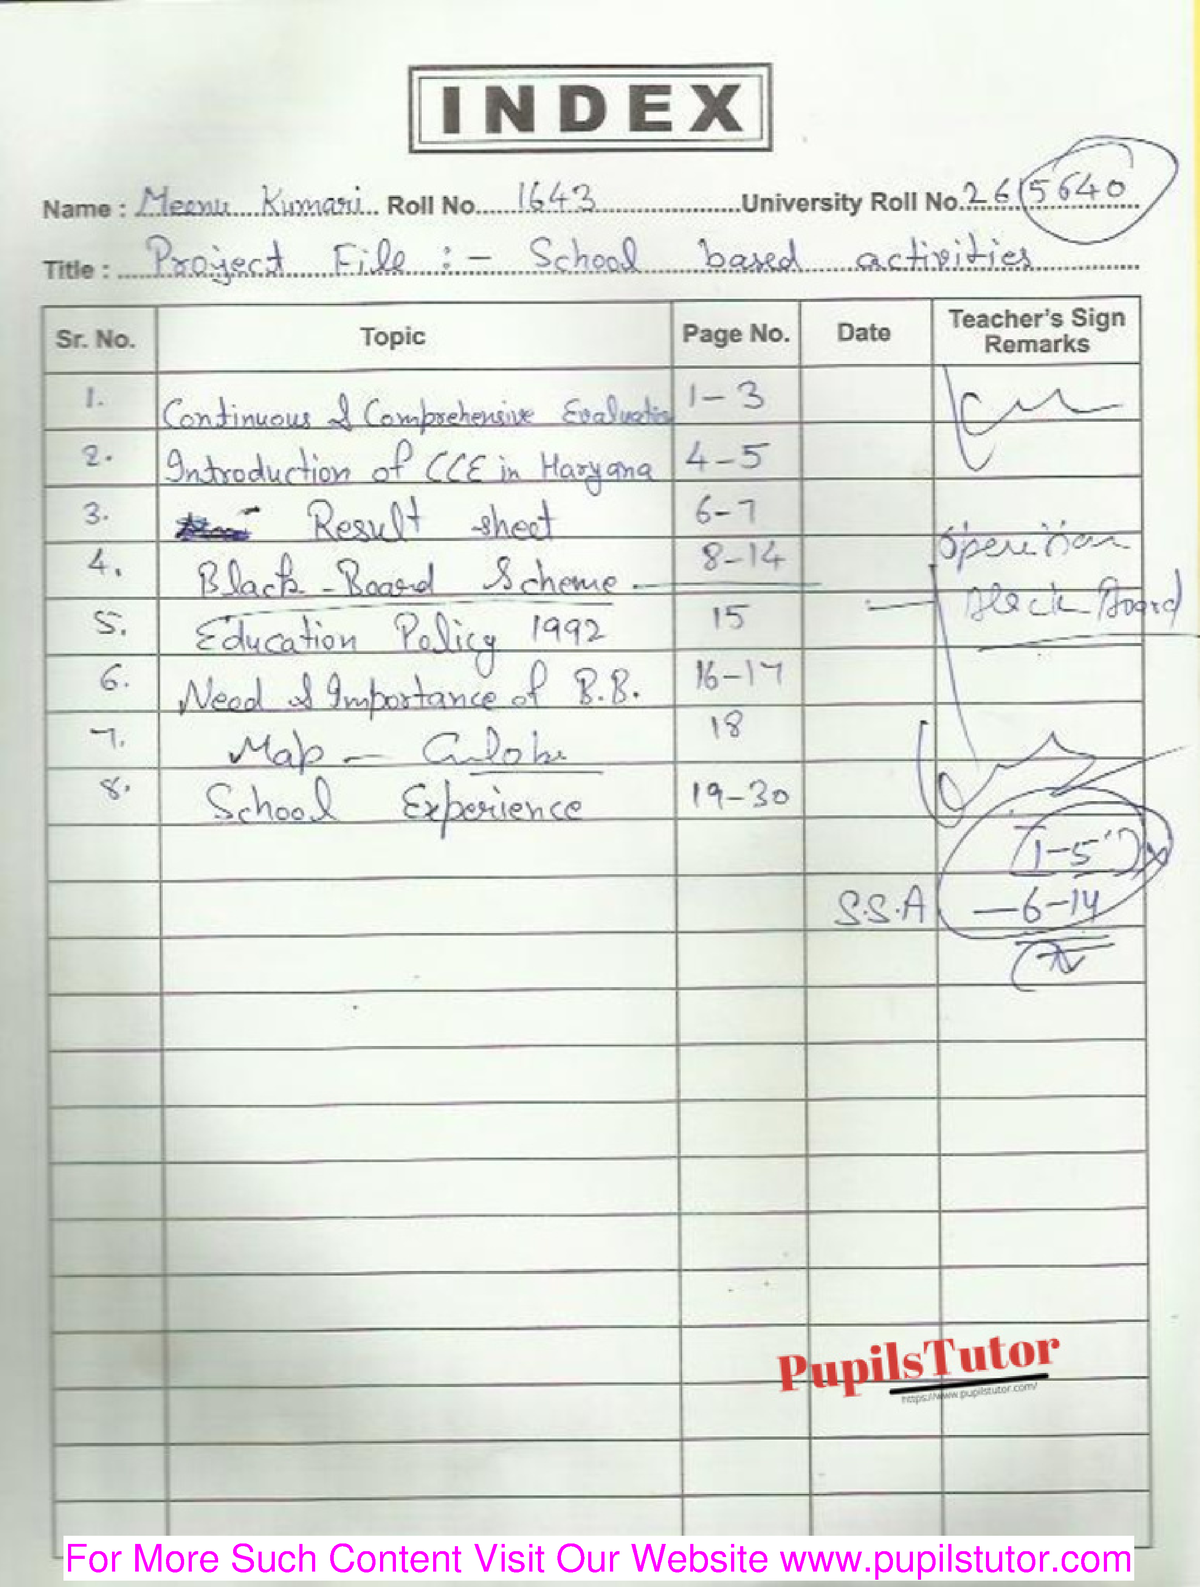 INDEX
Name : Meenu Kumari Roll No. 1643 University Roll No. 2615640
Title : Project File :- School based activities
Sr. No. Topic Page No. Date Teacher's Sign Remarks
1. Continuous & Comprehensive Evaluation 1-3
2. Introduction of CCE in Haryana 4-5
3. Result sheet 6-7
4. Black-Board Scheme 8-14
Operation
Black Board
5. Education Policy 1992 15
6. Need & Importance of B.B. 16-17
7. Map - Globe 18
8. School Experience 19-30
1-5
S.S.A - 6-14
PupilsTutor
https://www.pupilstutor.com/
For More Such Content Visit Our Website www.pupilstutor.com